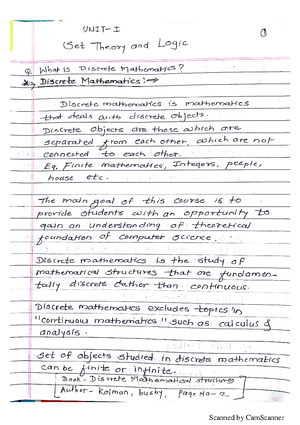 UNIT-I
Set Theory and Logic
Q. What is Discrete Mathematics?
Discrete Mathematics:→
Discrete mathematics is mathematics
that deals with discrete objects.
Discrete objects are those which are
separated from each other, which are not
connected to each other.
Eg. Finite mathematics, Integers, people,
house etc.
The main goal of this course is to
provide students with an opportunity to
gain an understanding of theoretical
foundation of computer science.
Discrete mathematics is the study of
mathematical structures that are fundamen-
tally discrete rather than continuous.
Discrete mathematics excludes topics in
"continuous mathematics" such as calculus &
analysis.
Set of objects studied in discrete mathematics
can be finite or infinite.
Book - Discrete Mathematical structures
Author - Kolman, busby, page no -
Scanned by CamScanner